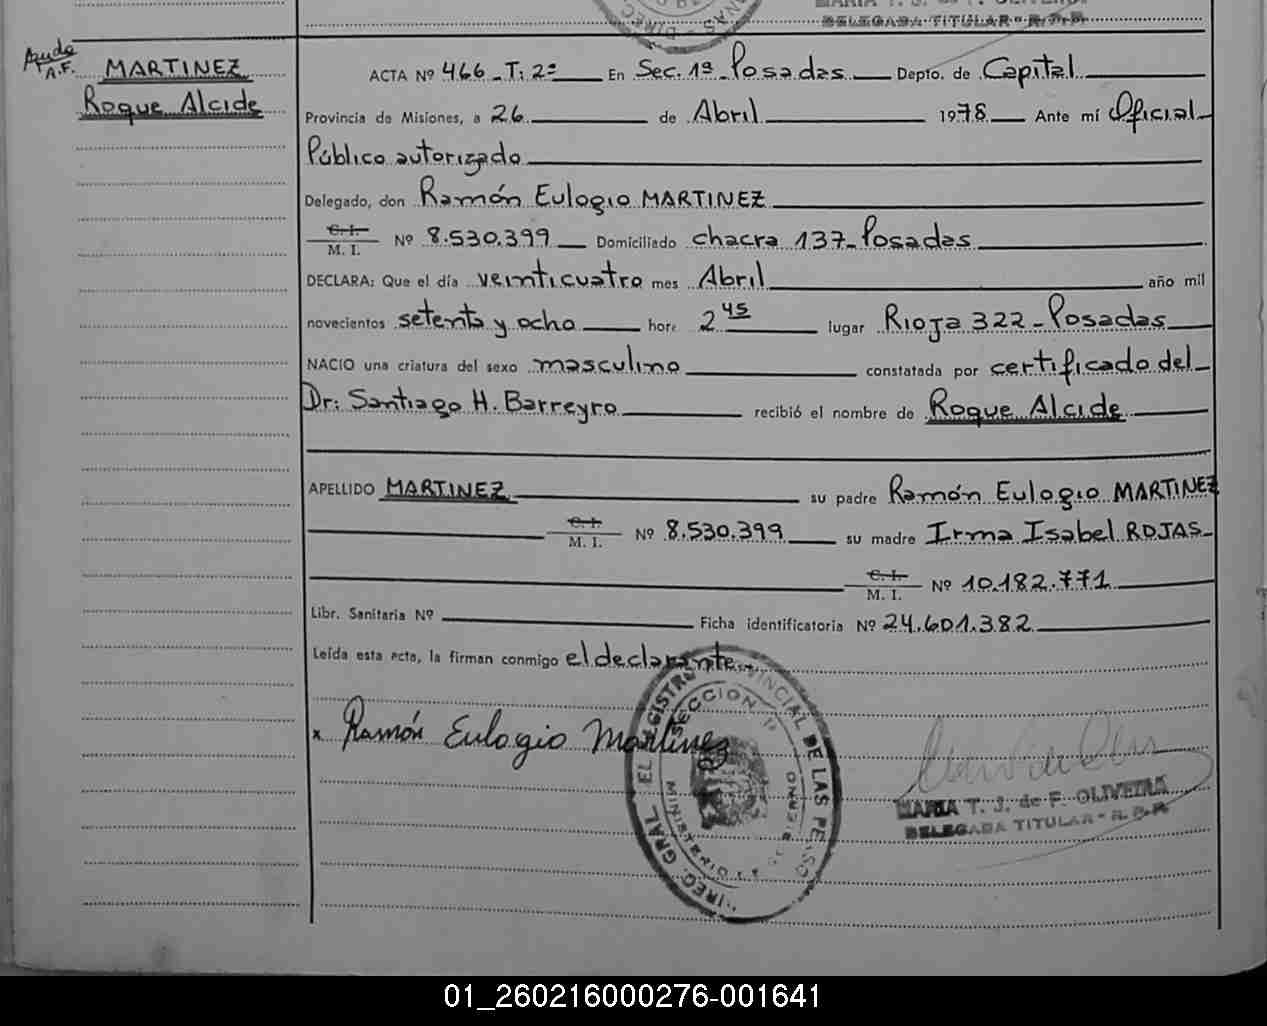 MARIA T. J. de F. OLIVEIRA
DELEGADA TITULAR - R. P. P.
A.F.
MARTINEZ
Roque Alcide
ACTA Nº 466 - T: 2º En Sec. 1ª Posadas Depto. de Capital
Provincia de Misiones, a 26 de Abril 1978 Ante mí Oficial
Público autorizado
Delegado, don Ramón Eulogio MARTINEZ
C. I.
M. I. Nº 8.530.399 Domiciliado chacra 137 - Posadas
DECLARA: Que el día veinticuatro mes Abril año mil
novecientos setenta y ocho hora 2 45 lugar Rioja 322 - Posadas
NACIO una criatura del sexo masculino constatada por certificado del
Dr: Santiago H. Barreyro recibió el nombre de Roque Alcide
APELLIDO MARTINEZ su padre Ramón Eulogio MARTINEZ
C. I.
M. I. Nº 8.530.399 su madre Irma Isabel ROJAS
C. I.
M. I. Nº 10.182.771
Libr. Sanitaria Nº Ficha identificatoria Nº 24.601.382
Leída esta acta, la firman conmigo el declarante
x Ramón Eulogio Martinez
DIREC. GRAL. DEL REGISTRO PROVINCIAL DE LAS PERSONAS
SECCION 1ª
MINISTERIO DE GOBIERNO
MARIA T. J. de F. OLIVEIRA
DELEGADA TITULAR - R. P. P.
01_260216000276-001641